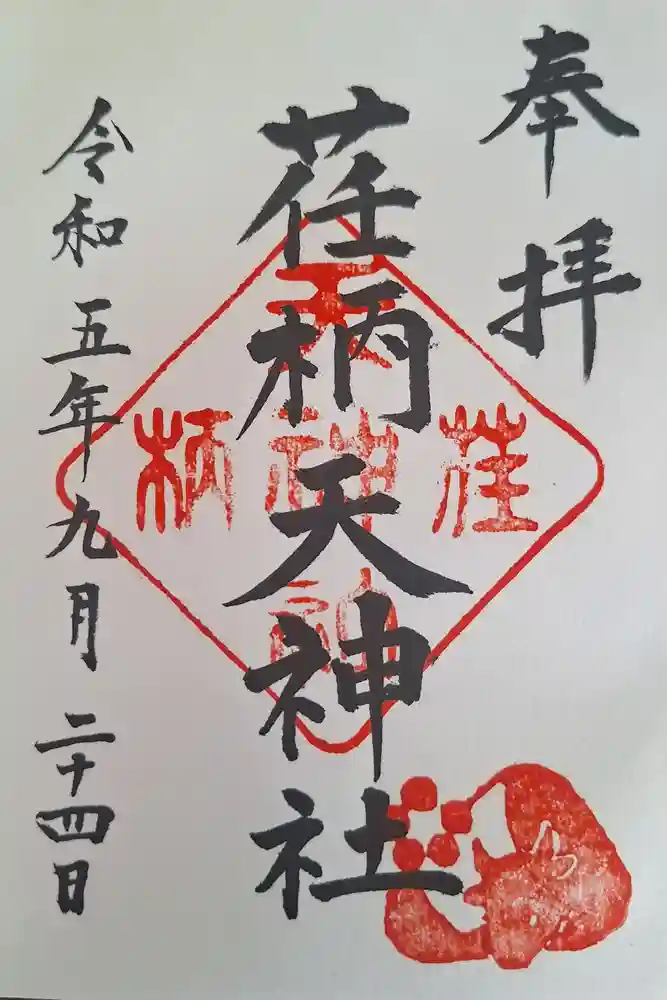 奉拝
荏柄天神社
令和五年九月二十四日
荏
柄
天
神
社